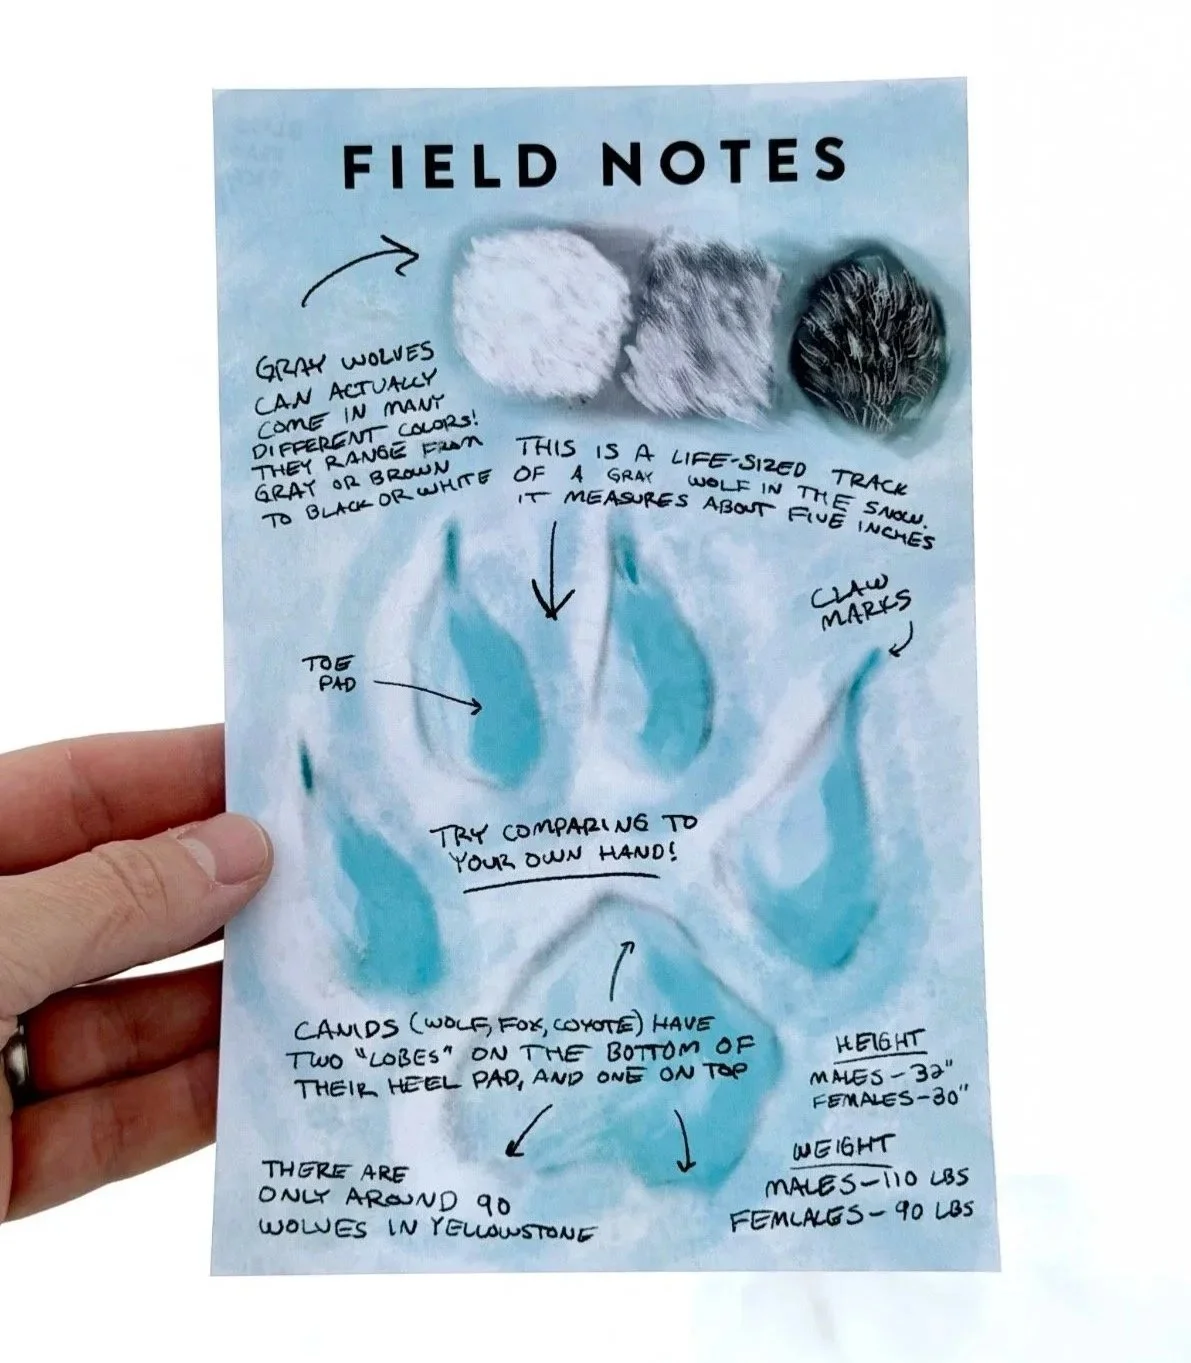 FIELD NOTES
GRAY WOLVES
CAN ACTUALLY
COME IN MANY
DIFFERENT COLORS!
THEY RANGE FROM
GRAY OR BROWN
TO BLACK OR WHITE
THIS IS A LIFE-SIZED TRACK
OF A GRAY WOLF IN THE SNOW.
IT MEASURES ABOUT FIVE INCHES
CLAW
MARKS
TOE
PAD
TRY COMPARING TO
YOUR OWN HAND!
CANIDS (WOLF, FOX, COYOTE) HAVE
TWO "LOBES" ON THE BOTTOM OF
THEIR HEEL PAD, AND ONE ON TOP
HEIGHT
MALES - 32"
FEMALES - 30"
WEIGHT
MALES - 110 LBS
FEMLALES - 90 LBS
THERE ARE
ONLY AROUND 90
WOLVES IN YELLOWSTONE